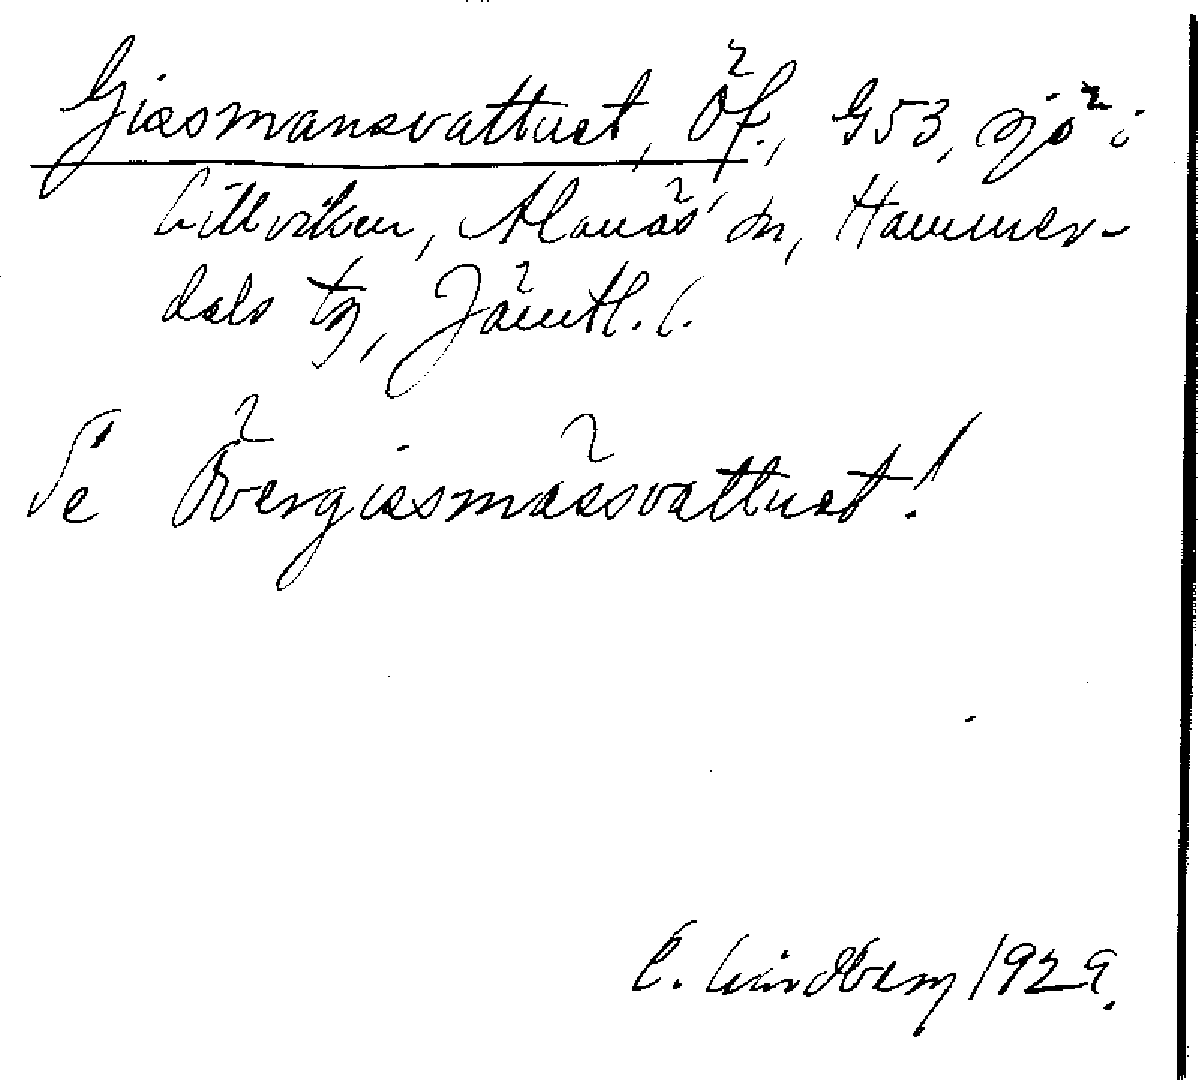 Gissmansvattnet, Öf., G53, sjö i
Lillviken, Alanäs sn, Hammer-
dals tg, Jämtl. l.
Se Övergissmansvattnet!
E. Lindberg 1929.